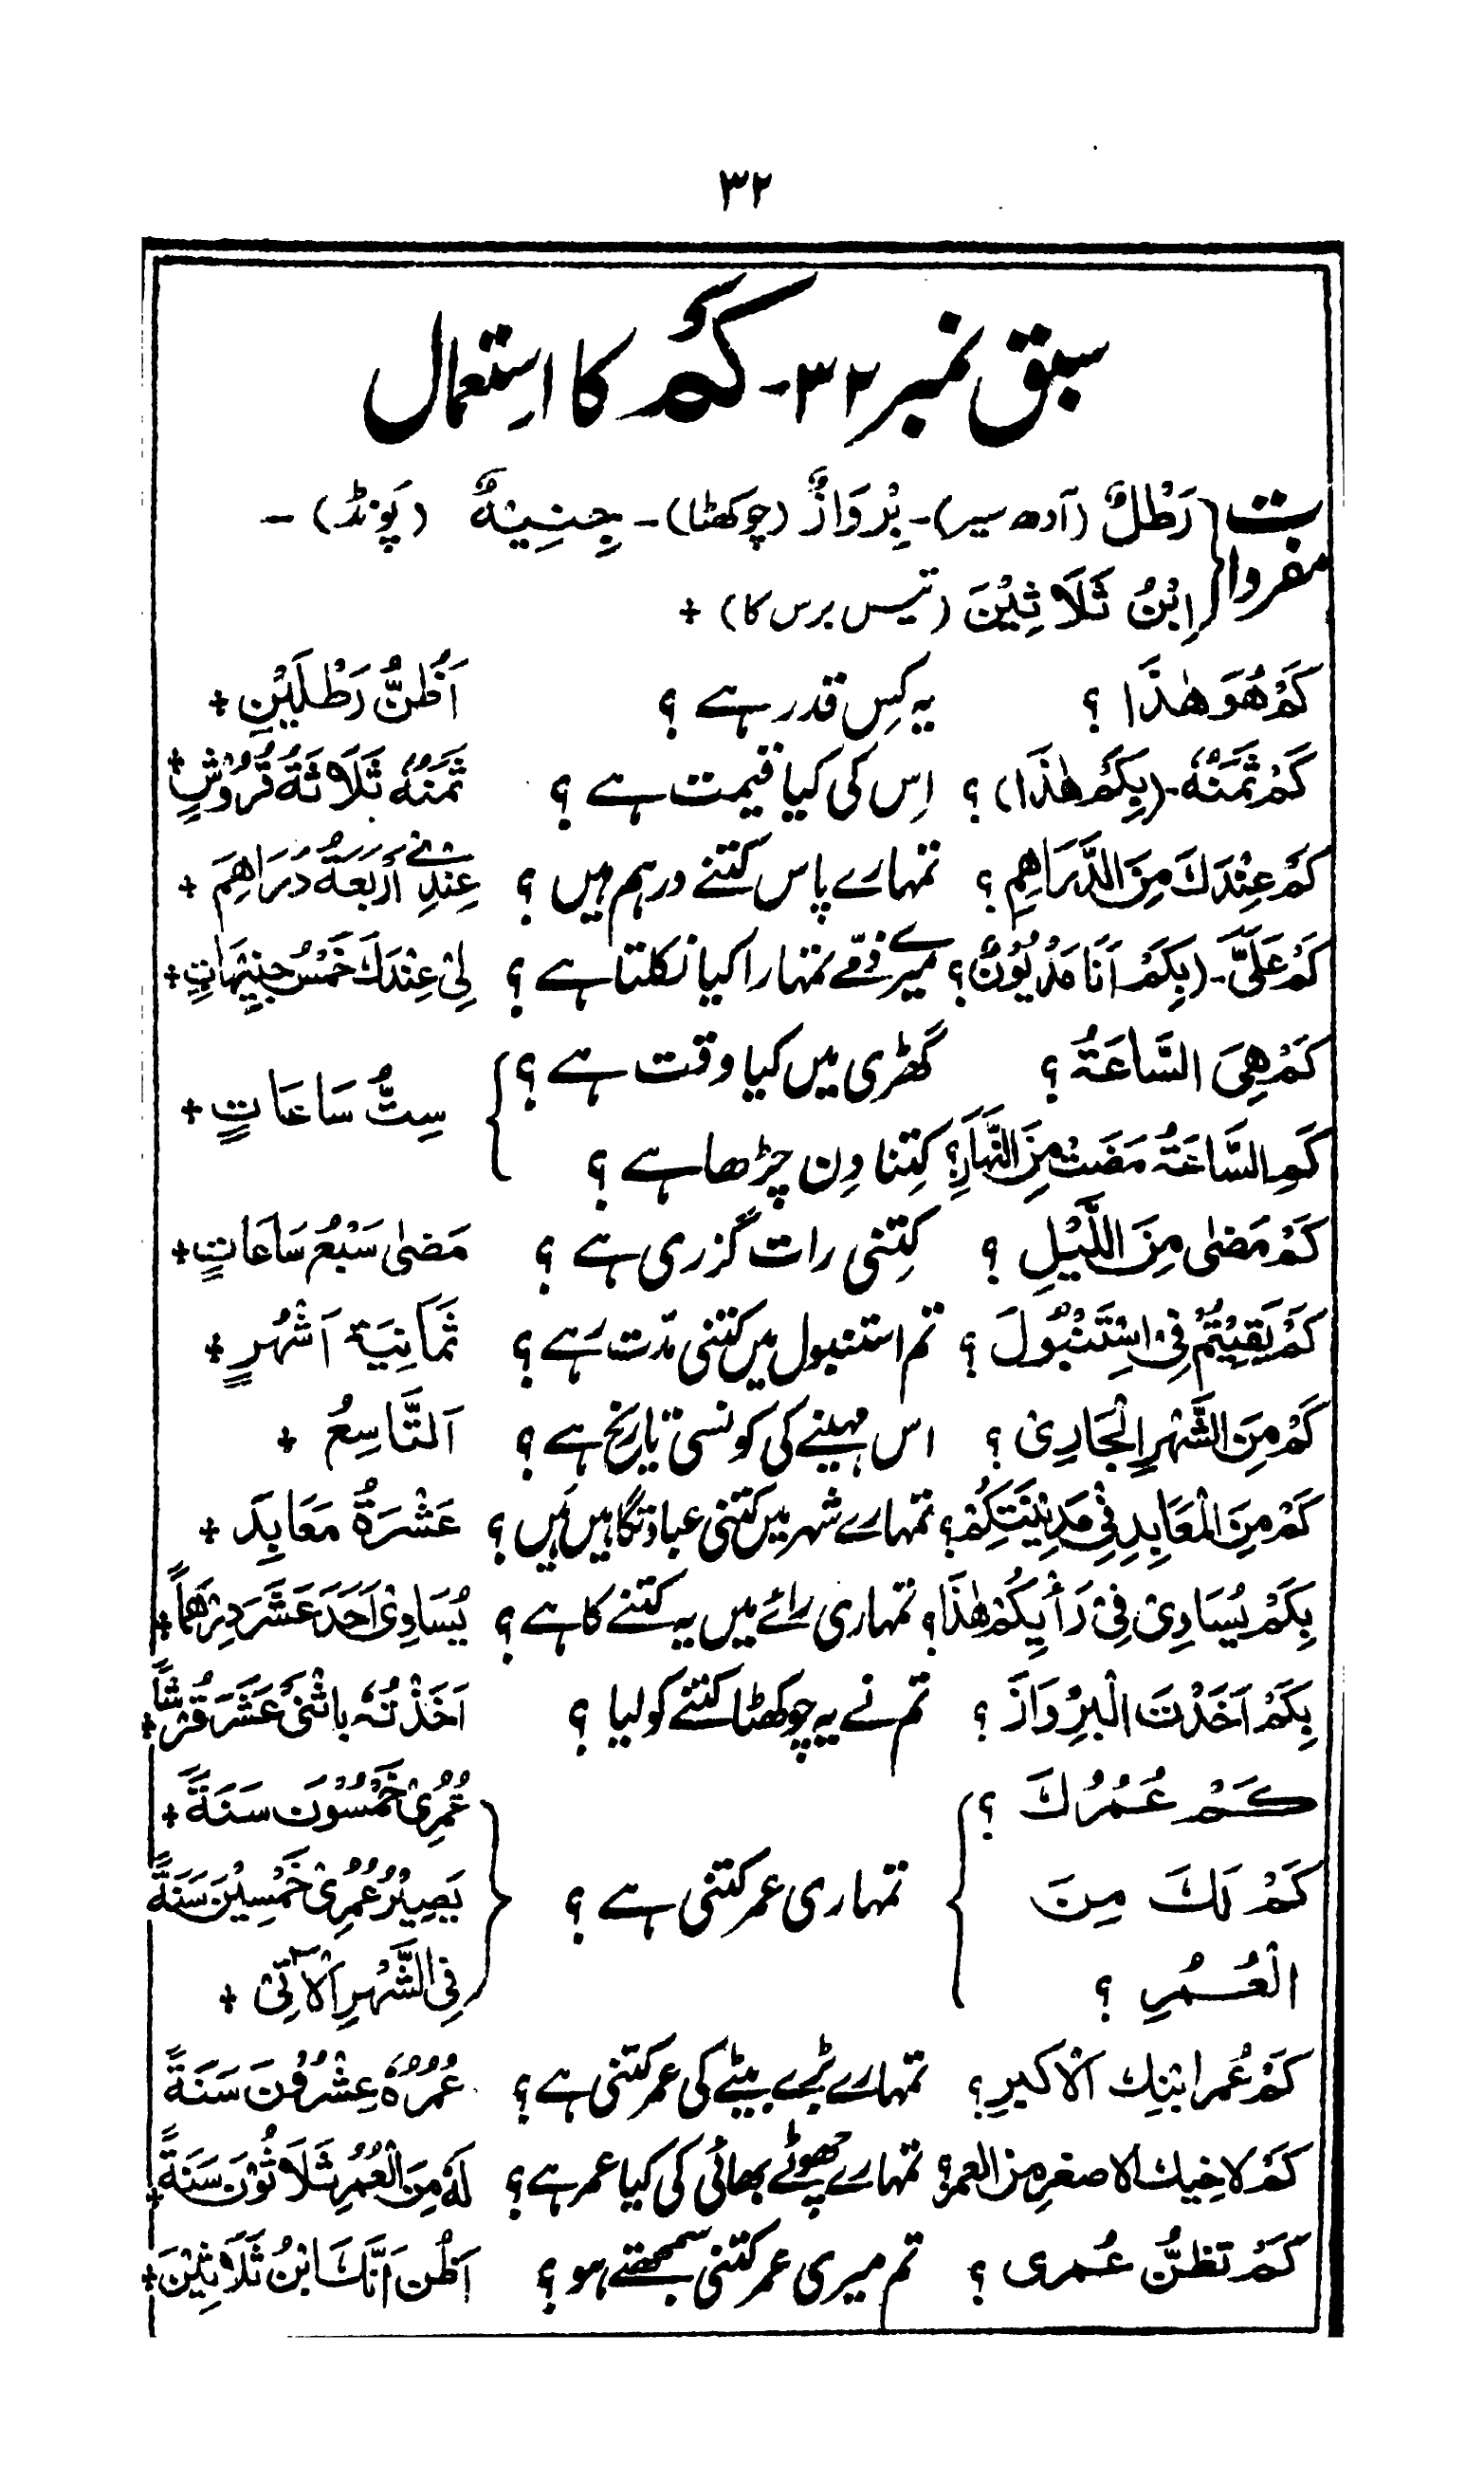 ۳۲
سبق نمبر ۳۲ - کَمْ کا استعمال
مفردات { رَطْلٌ (آدھ سیر) - بِرْوَازٌ (چوکھٹا) - جِنِيْهٌ (پَونڈ) -
اِبْنُ ثَلَاثِيْنَ (تیس برس کا) +
كَمْ هُوَ هٰذَا ؟ یہ کِس قدر ہے ؟ اَظُنُّ رَطْلَيْنِ +
كَمْ ثَمَنُهٗ - (بِكَمْ هٰذَا) ؟ اِس کی کیا قیمت ہے ؟ ثَمَنُهٗ ثَلَاثَةُ قُرُوْشٍ +
كَمْ عِنْدَكَ مِنَ الدَّرَاهِمِ ؟ تمہارے پاس کتنے درہم ہیں ؟ عِنْدِيْ أَرْبَعَةُ دَرَاهِمَ +
كَمْ عَلَيَّ - (بِكَمْ اَنَا مَدْيُوْنٌ) ؟ میرے ذمّے تمہارا کیا نکلتا ہے ؟ لِيْ عِنْدَكَ خَمْسُ جِنِيْهَاتٍ +
كَمْ هِيَ السَّاعَةُ ؟ گھڑی میں کیا وقت ہے ؟ } سِتُّ سَاعَاتٍ +
كَمِ السَّاعَةُ مَضَتْ مِنَ النَّهَارِ ؟ کِتنا دِن چڑھا ہے ؟
كَمْ مَضٰى مِنَ اللَّيْلِ ؟ کِتنی رات گزری ہے ؟ مَضٰى سَبْعُ سَاعَاتٍ +
كَمْ بَقِيْتُمْ فِيْ اِسْتَنْبُوْلَ ؟ تم استنبول میں کتنی مدّت رہے ؟ ثَمَانِيَةَ اَشْهُرٍ +
كَمْ مِنَ الشَّهْرِ الْجَارِيْ ؟ اس مہینے کی کونسی تاریخ ہے ؟ اَلتَّاسِعُ +
كَمْ مِنَ الْمَعَابِدِ فِيْ مَدِيْنَتِكُمْ ؟ تمہارے شہر میں کتنی عبادتگاہیں ہیں ؟ عَشْرَةُ مَعَابِدَ +
بِكَمْ يُسَاوِيْ فِيْ رَأْيِكُمْ هٰذَا ؟ تمہاری رائے میں یہ کتنے کا ہے ؟ يُسَاوِيْ اَحَدَ عَشَرَ دِرْهَمًا +
بِكَمْ اَخَذْتَ الْبِرْوَازَ ؟ تم نے یہ چوکھٹا کتنے کو لیا ؟ اَخَذْتُهٗ بِاثْنَيْ عَشَرَ قُرْشًا +
كَمْ عُمُرُكَ ؟ } { عُمُرِيْ خَمْسُوْنَ سَنَةً +
كَمْ لَكَ مِنَ تمہاری عمر کتنی ہے ؟ يَصِيْرُ عُمُرِيْ خَمْسِيْنَ سَنَةً
الْعُمُرِ ؟ فِي الشَّهْرِ الْاٰتِيْ +
كَمْ عُمر ابْنِكَ الْاكبرِ ؟ تمہارے بڑے بیٹے کی عمر کتنی ہے ؟ عُمُرُهٗ عِشْرُوْنَ سَنَةً
كَمْ لاخيك الاصغرِ من العمر ؟ تمہارے چھوٹے بھائی کی کیا عمر ہے ؟ لَهٗ مِنَ الْعُمُرِ ثَلَاثُوْنَ سَنَةً +
كَمْ تظنُّ عُمرى ؟ تم میری عمر کتنی سمجھتے ہو ؟ اَظُنُّ اَنَّكَ ابْنُ ثَلَاثِيْنَ +